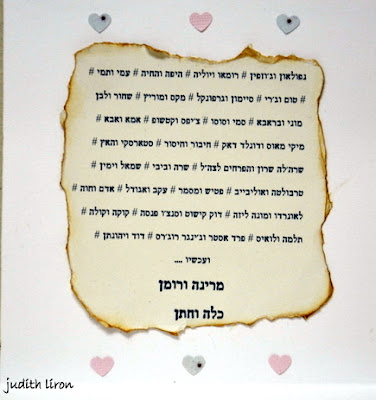 נפולאון וג'וזפין # רומאו ויוליה # היפה והחיה # עמי ותמי #
# טום וג'רי # סיימון וגרפונקל # מקס ומוריץ # שחור ולבן
מוני ובראבא # סמי וסוסו # צ'יפס וקטשופ # אמא ואבא #
מיקי מאוס ודונלד דאק # חיבור וחיסור # סטארסקי והאץ #
שרה'לה שרון והפרחים לצה"ל # שרה וביבי # שמאל וימין #
טרבולטה ואוליבייב # פטיש ומסמר # עקב ואגודל # אדם וחוה #
לאונרדו ומונה ליזה # דון קישוט וסנצ'ו פנסה # קוקה וקולה #
תלמה ולואיס # פרד אסטר וג'ינג'ר רוג'רס # דוד ויהונתן #
ועכשיו ....
מרינה ורומן
כלה וחתן
judith liron